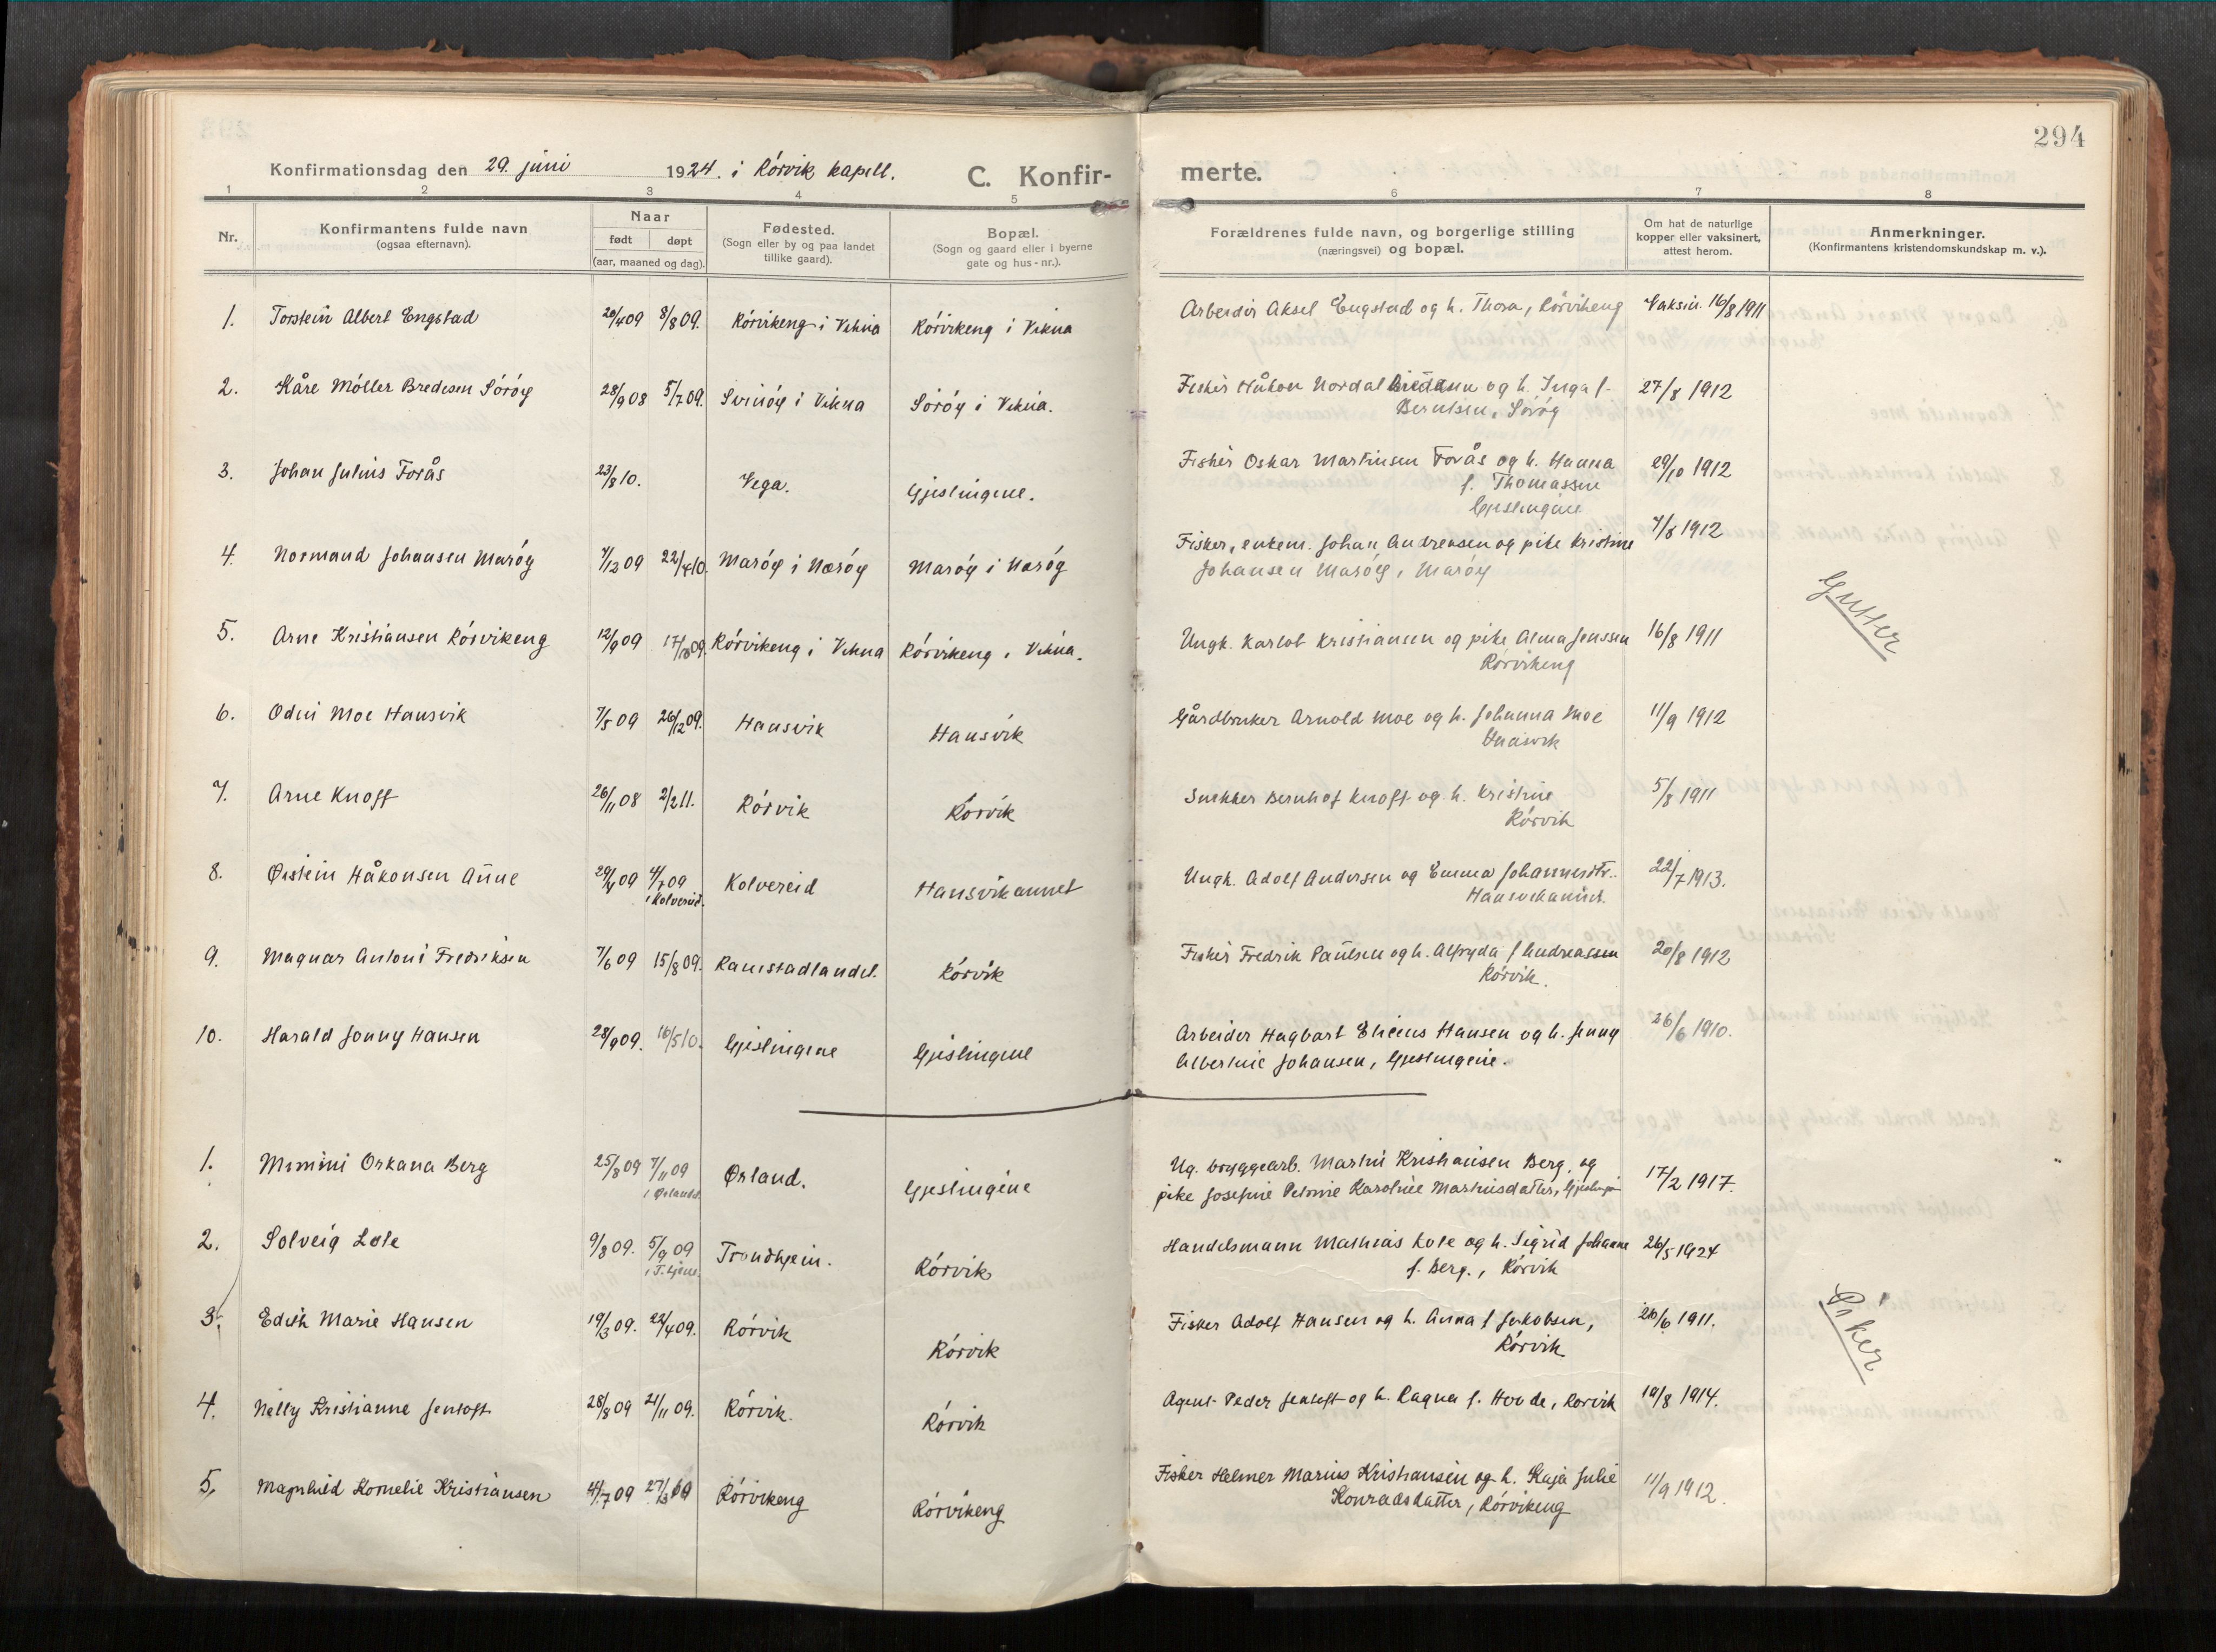 294
Konfirmationsdag den 29. juni 1924. i Rórvik kapell. C. Konfir- merte.
1 2 3 4 5 6 7 8
Nr. Konfirmantens fulde navn (ogsaa efternavn). Naar født døpt (aar, maaned og dag). Fødested. (Sogn eller by og paa landet tillike gaard). Bopæl. (Sogn og gaard eller i byerne gate og hus-nr.). Forældrenes fulde navn, og borgerlige stilling (næringsvei) og bopæl. Om hat de naturlige kopper eller vaksinert, attest herom. Anmerkninger. (Konfirmantens kristendomskundskap m. v.).
1. Torstein Albert Engstad 20/4 09 8/8 09. Rórvikeng i Vikna Rórvikeng i Vikna Arbeider Aksel Engstad og h. Thora, Rórvikeng Vaksin. 16/8 1911
2. Kåre Móller Bredesen Sóróy 28/9 08 5/7 09. Svinóy i Vikna Soróy i Vikna. Fisker Håkon Nordal og h. Inga f. 27/8 1912
Berntsen, Soróy
3. Johan Julius Forås 23/8 10. Vega. Gjeslingene. Fisker Oskar Martinsen Forås og h. Hanna 29/10 1912
f. Thomassen
Gjeslingene
4. Normand Johansen Maróy 7/12 09 22/4 10. Maróy i Næróy Maróy i Næróy Fisker, enkem. Johan Andreasen og pike Kristine 7/8 1912
Johansen Maróy, Maróy
Gutter
5. Arne Kristiansen Rórvikeng 12/9 09 17/10 09. Rórvikeng i Vikna Rórvikeng i Vikna. Ungk. Karlot Kristiansen og pike Alma Jenssen 16/8 1911
Rórvikeng
6. Odin Moe Hansvik 7/5 09 26/12 09. Hansvik Hansvik Gårdbruker Arnold Moe og h. Johanna Moe 11/9 1912
Hansvik
7. Arne Knoff 26/11 08 2/2 11. Rórvik Rórvik Snekker Bernhof Knoff og h. Kristine 5/8 1911
Rórvik
8. Øistein Håkonsen Anne 29/4 09 4/7 09 Kolvereid Hansvikannet Ungk. Adolf Andersen og Emma Johannesdtr. 22/7 1913.
i Kolvereid. Hansvikannet.
9. Magnar Antoni Fredriksen 7/6 09 15/8 09. Ramstadlandet. Rórvik Fisker Fredrik Paulsen og h. Alfryda f Andreassen 20/8 1912
Rórvik.
10. Harald Jonny Hansen 28/9 09. 16/5 10. Gjeslingene Gjeslingene Arbeider Hagbart Eliceus Hansen og h. Jenny 26/6 1910.
Albertine Johansen, Gjeslingene.
1. Mimmi Orkana Berg 25/8 09 7/11 09 Ørland. Gjeslingene Ug. bryggearb. Martin Kristiansen Berg, og 17/2 1917.
i Ørlandet. pike Josefine Petrine Karoline Martinsdatter,
2. Solveig Lole 9/8 09. 5/9 09 Trondhjem. Rórvik Handelsmann Mathias Lole og h. Sigrid Johanne 26/5 1924
i T.hjem. f. Berg., Rórvik
Piker
3. Edith Marie Hansen 19/3 09. 22/4 09. Rórvik Rórvik Fisker Adolf Hansen og h. Anna f Jakobsen, 20/6 1911.
Rórvik
4. Nelly Kristianne Jentoft 28/8 09 21/11 09. Rórvik. Rórvik Agent Peder Jentoft og h. Ragna f. Hovde, Rorvik 19/8 1914.
5. Magnhild Kornelie Kristiansen 09 Rórvikeng Rórvikeng Fisker Helmer Marius Kristiansen og h. Kaja Julie 11/9 1912.
Konradsdatter, Rórvikeng